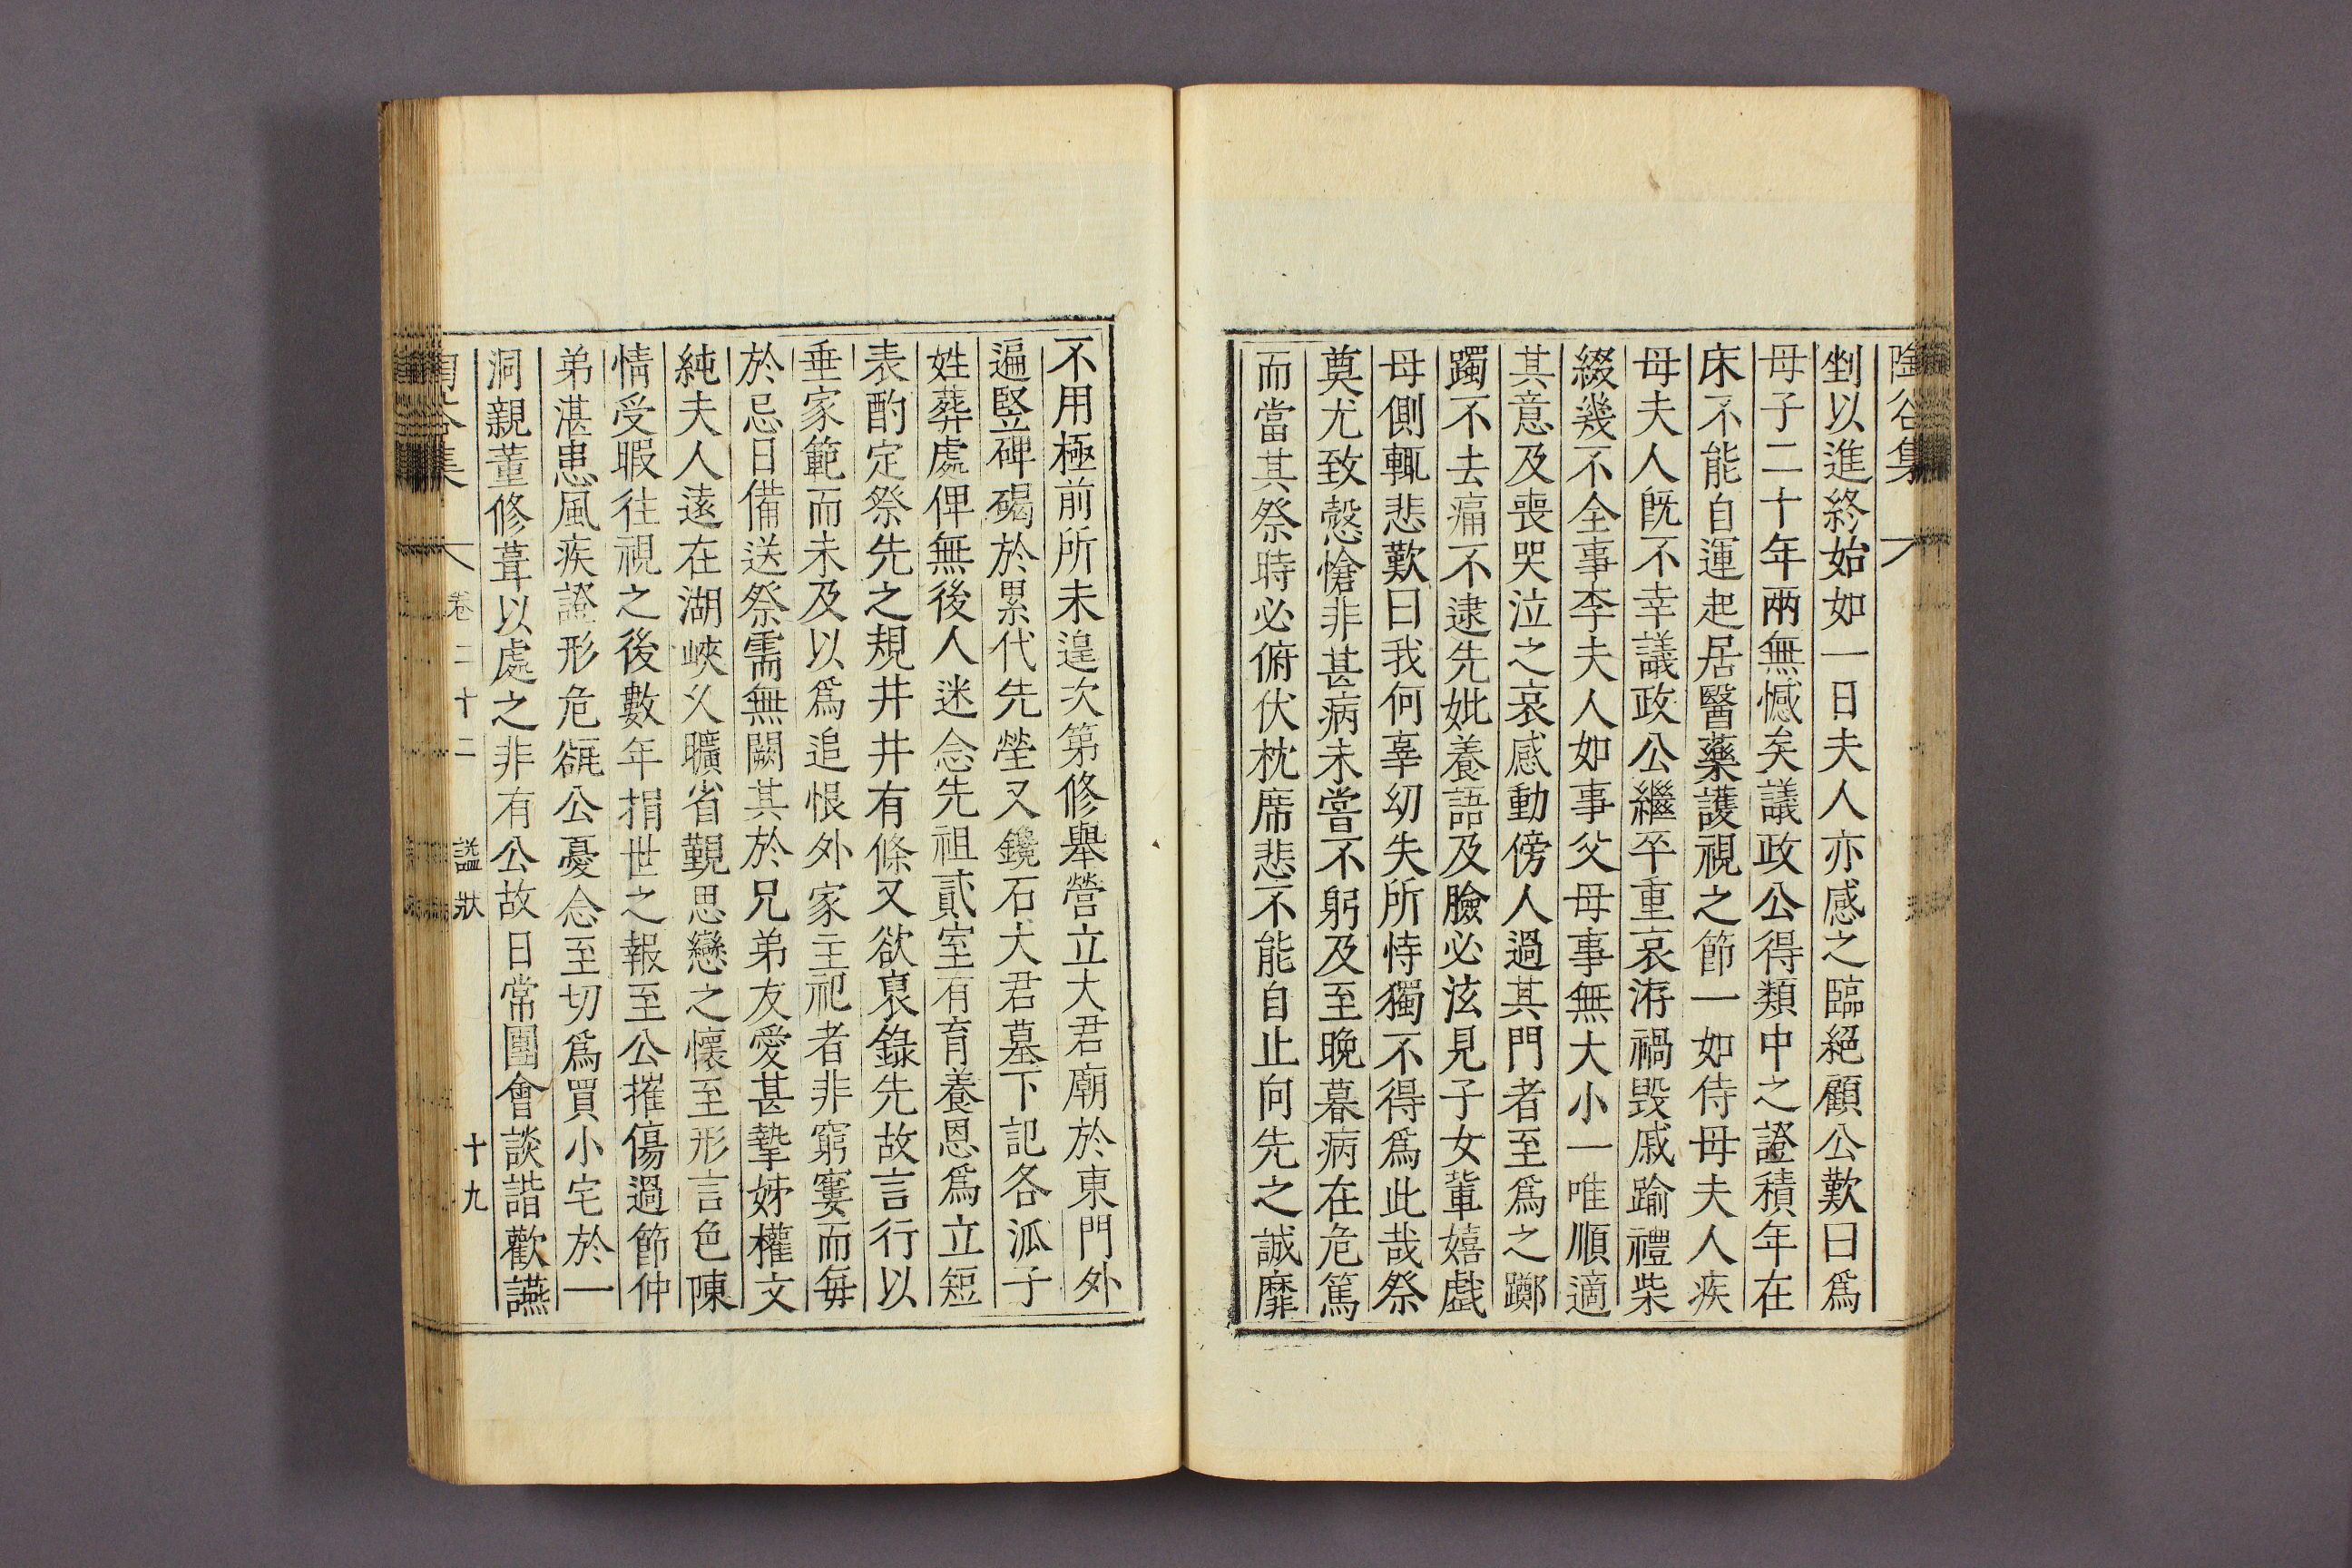 陶谷集
剉以進終始如一日夫人亦感之臨絕顧公歎曰爲
母子二十年兩無憾矣議政公得類中之證積年在
床不能自運起居醫藥護視之節一如侍母夫人疾
母夫人旣不幸議政公繼卒重哀洊禍毁戚踰禮柴
綴幾不全事李夫人如事父母事無大小一唯順適
其意及喪哭泣之哀感動傍人過其門者至爲之躑
躅不去痛不逮先妣養語及臉必泫見子女輩嬉戱
母側輒悲歎曰我何辜幼失所恃獨不得爲此哉祭
奠尤致慤愴非甚病未嘗不躬及至晚暮病在危篤
而當其祭時必俯伏枕席悲不能自止向先之誠靡
不用極前所未遑次第修舉營立大君廟於東門外
遍竪碑碣於累代先塋又鑱石大君墓下記各派子
姓葬處俾無後人迷念先祖貳室有育養恩爲立短
表酌定祭先之規井井有條又欲裒錄先故言行以
垂家範而未及以爲追恨外家主祀者非窮寠而每
於忌日備送祭需無闕其於兄弟友愛甚摯姊權文
純夫人遠在湖峽久曠省覲思戀之懷至形言色陳
情受暇往視之後數年捐世之報至公摧傷過節仲
弟湛患風疾證形危㼢公憂念至切爲買小宅於一
洞親董修葺以處之非有公故日常團會談諧歡讌
陶谷集 卷二十二 諡狀 十九